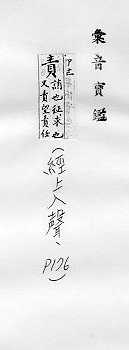 彙音寶鑑
責 誚也征求也
又責望責任
(經上入聲、P176)